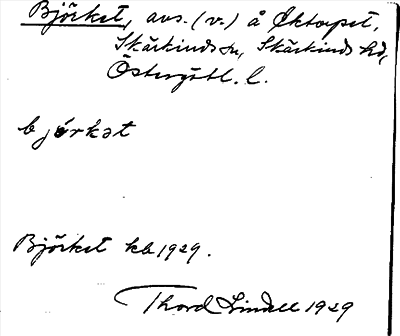 Björket, avs. (v.) å Öktorpet,
Skärkinds sn, Skärkinds hd,
Östergötl. l.
bjǿrkət
Björket kb 1929.
Thord Lindell 1929